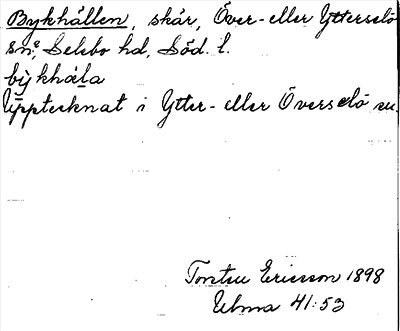 Bykhällen, skär, Över- eller Ytterselö
sn, Selebo hd, Söd. l.
bỳkhála
Upptecknat i Ytter- eller Överselö sn.
Torsten Ericsson 1898
Ulma 41:53